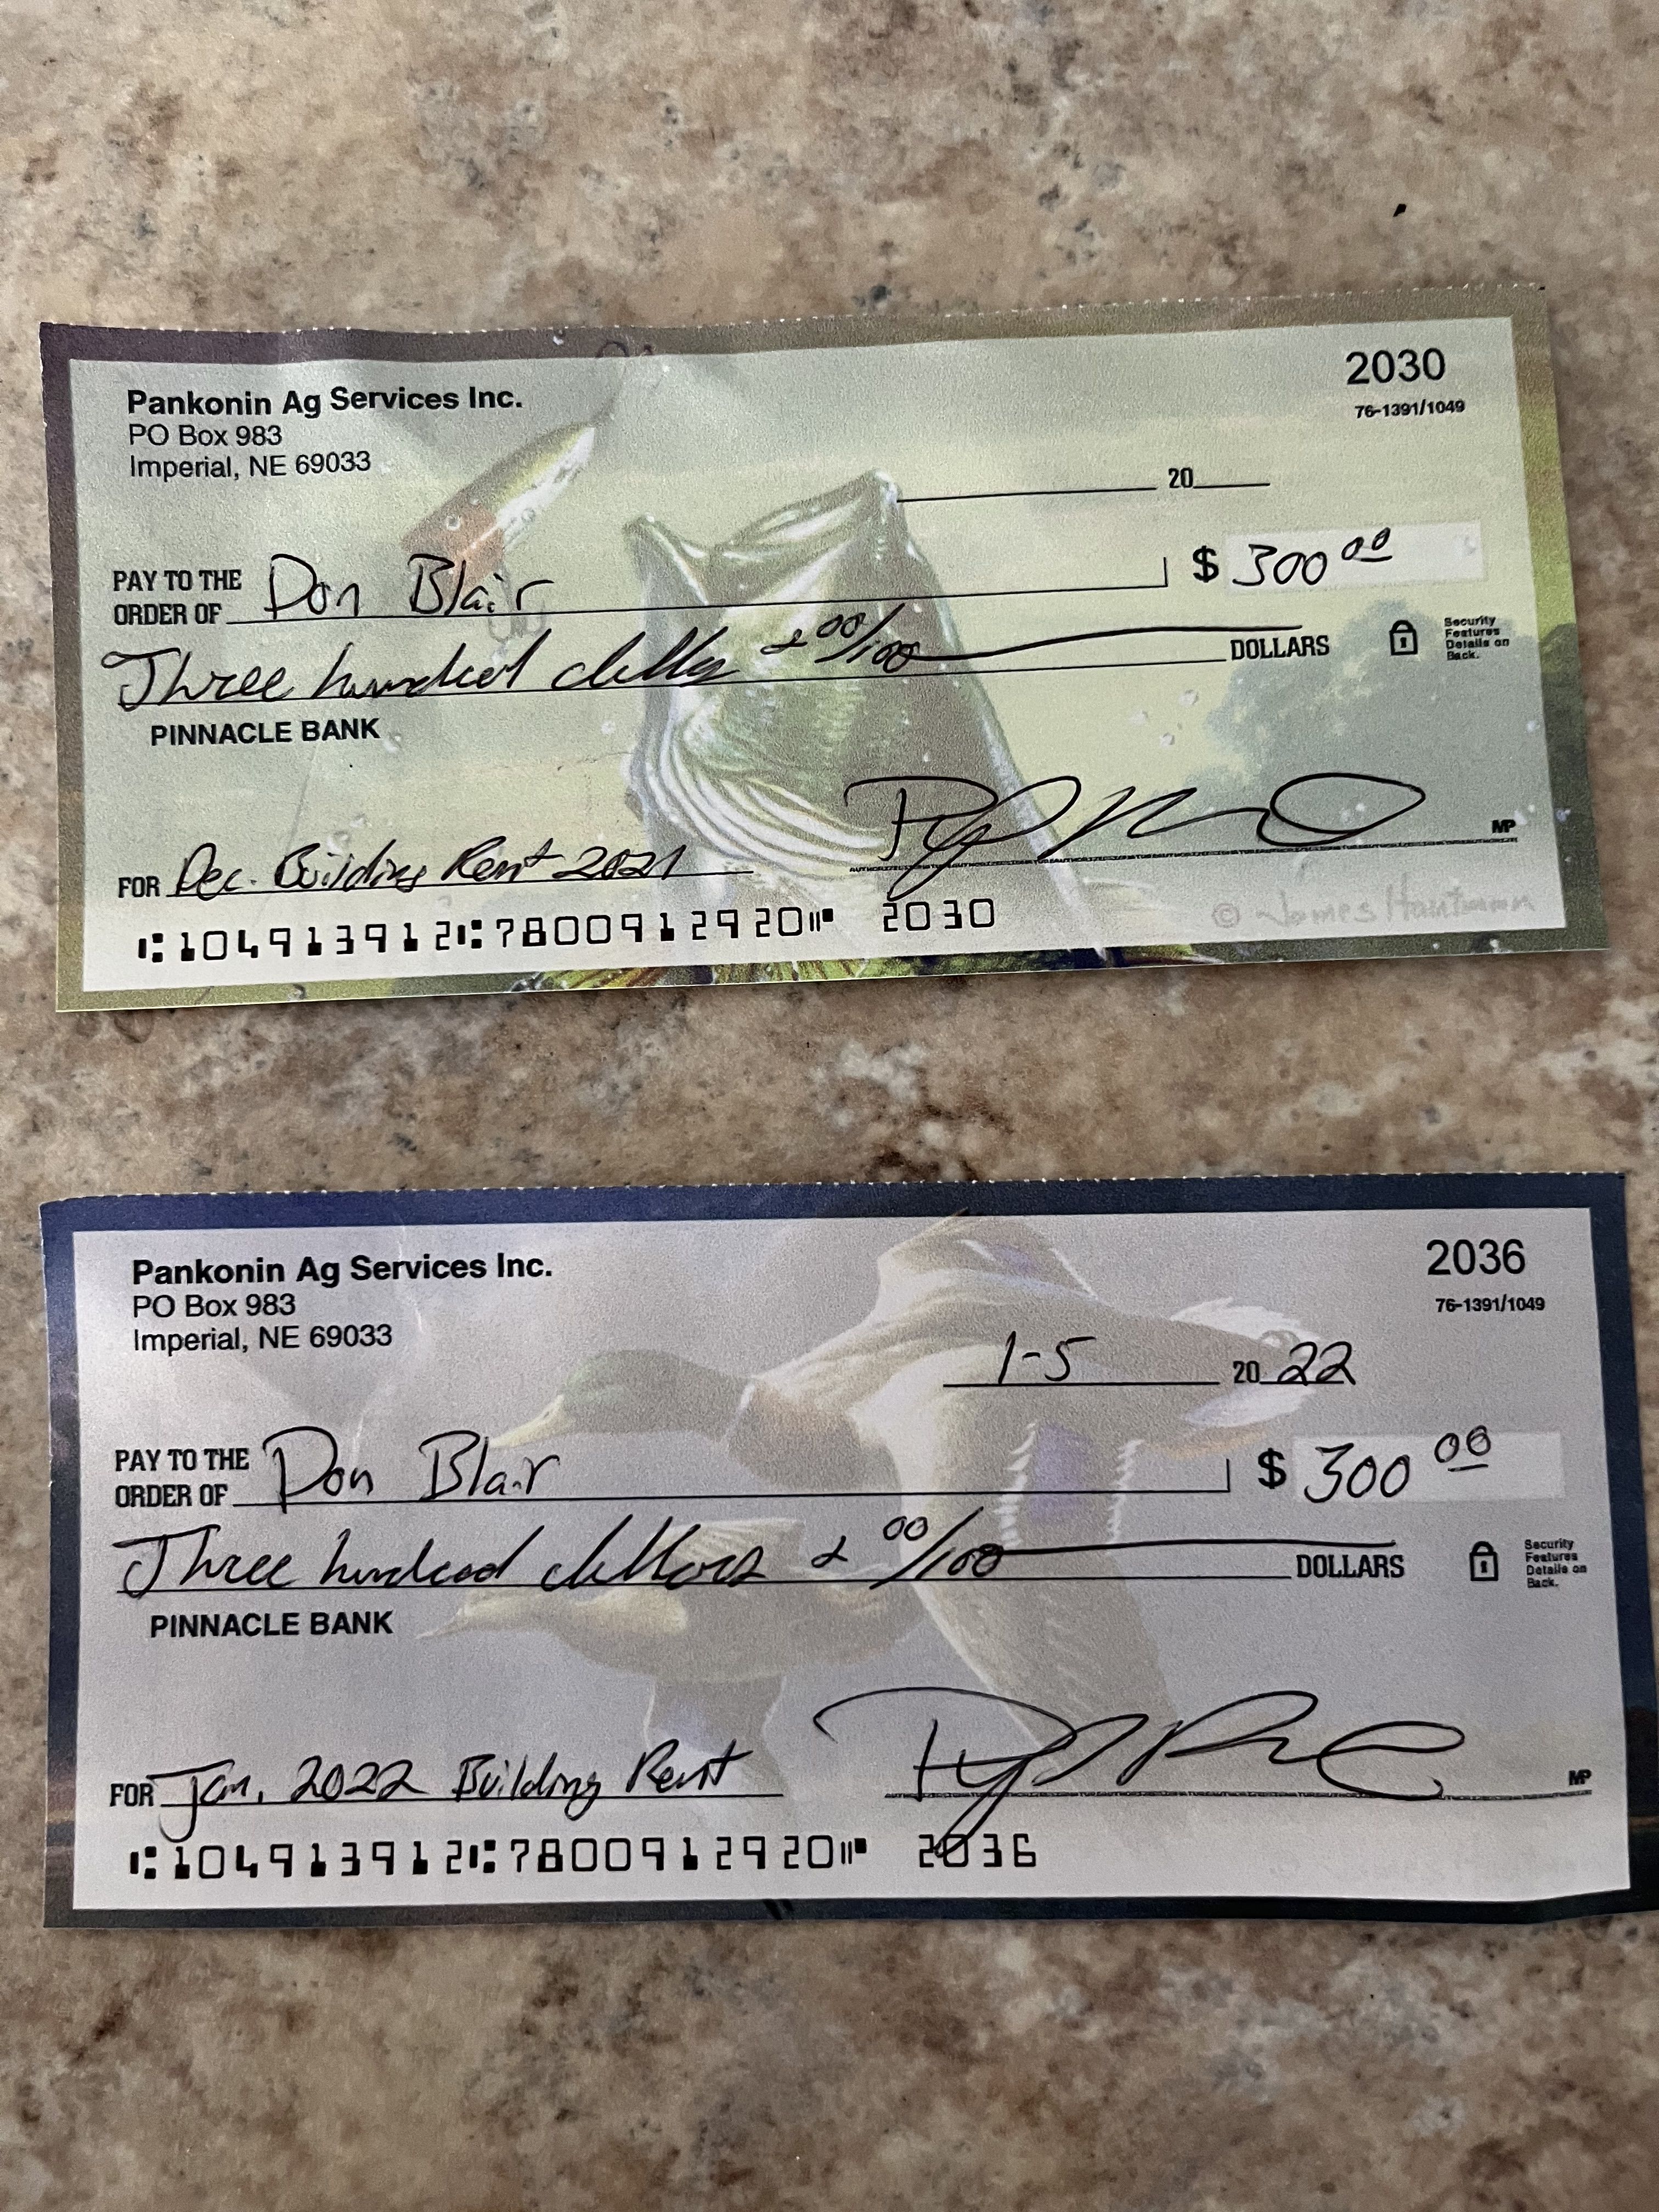 2030
Pankonin Ag Services Inc.
76-1391/1049
PO Box 983
Imperial, NE 69033
20
PAY TO THE ORDER OF Don Blair $ 300 00
Three hundred & 00/100 DOLLARS
Security Features Details on Back.
PINNACLE BANK
MP
FOR Dec. Building Rent 2021
© James Hautman
⑆104913912⑆7800912920⑈ 2030
2036
Pankonin Ag Services Inc.
76-1391/1049
PO Box 983
Imperial, NE 69033
1-5 20 22
PAY TO THE ORDER OF Don Blair $ 300 00
Three hundred dollars & 00/100 DOLLARS
Security Features Details on Back.
PINNACLE BANK
MP
FOR Jan. 2022 Building Rent
⑆104913912⑆7800912920⑈ 2036